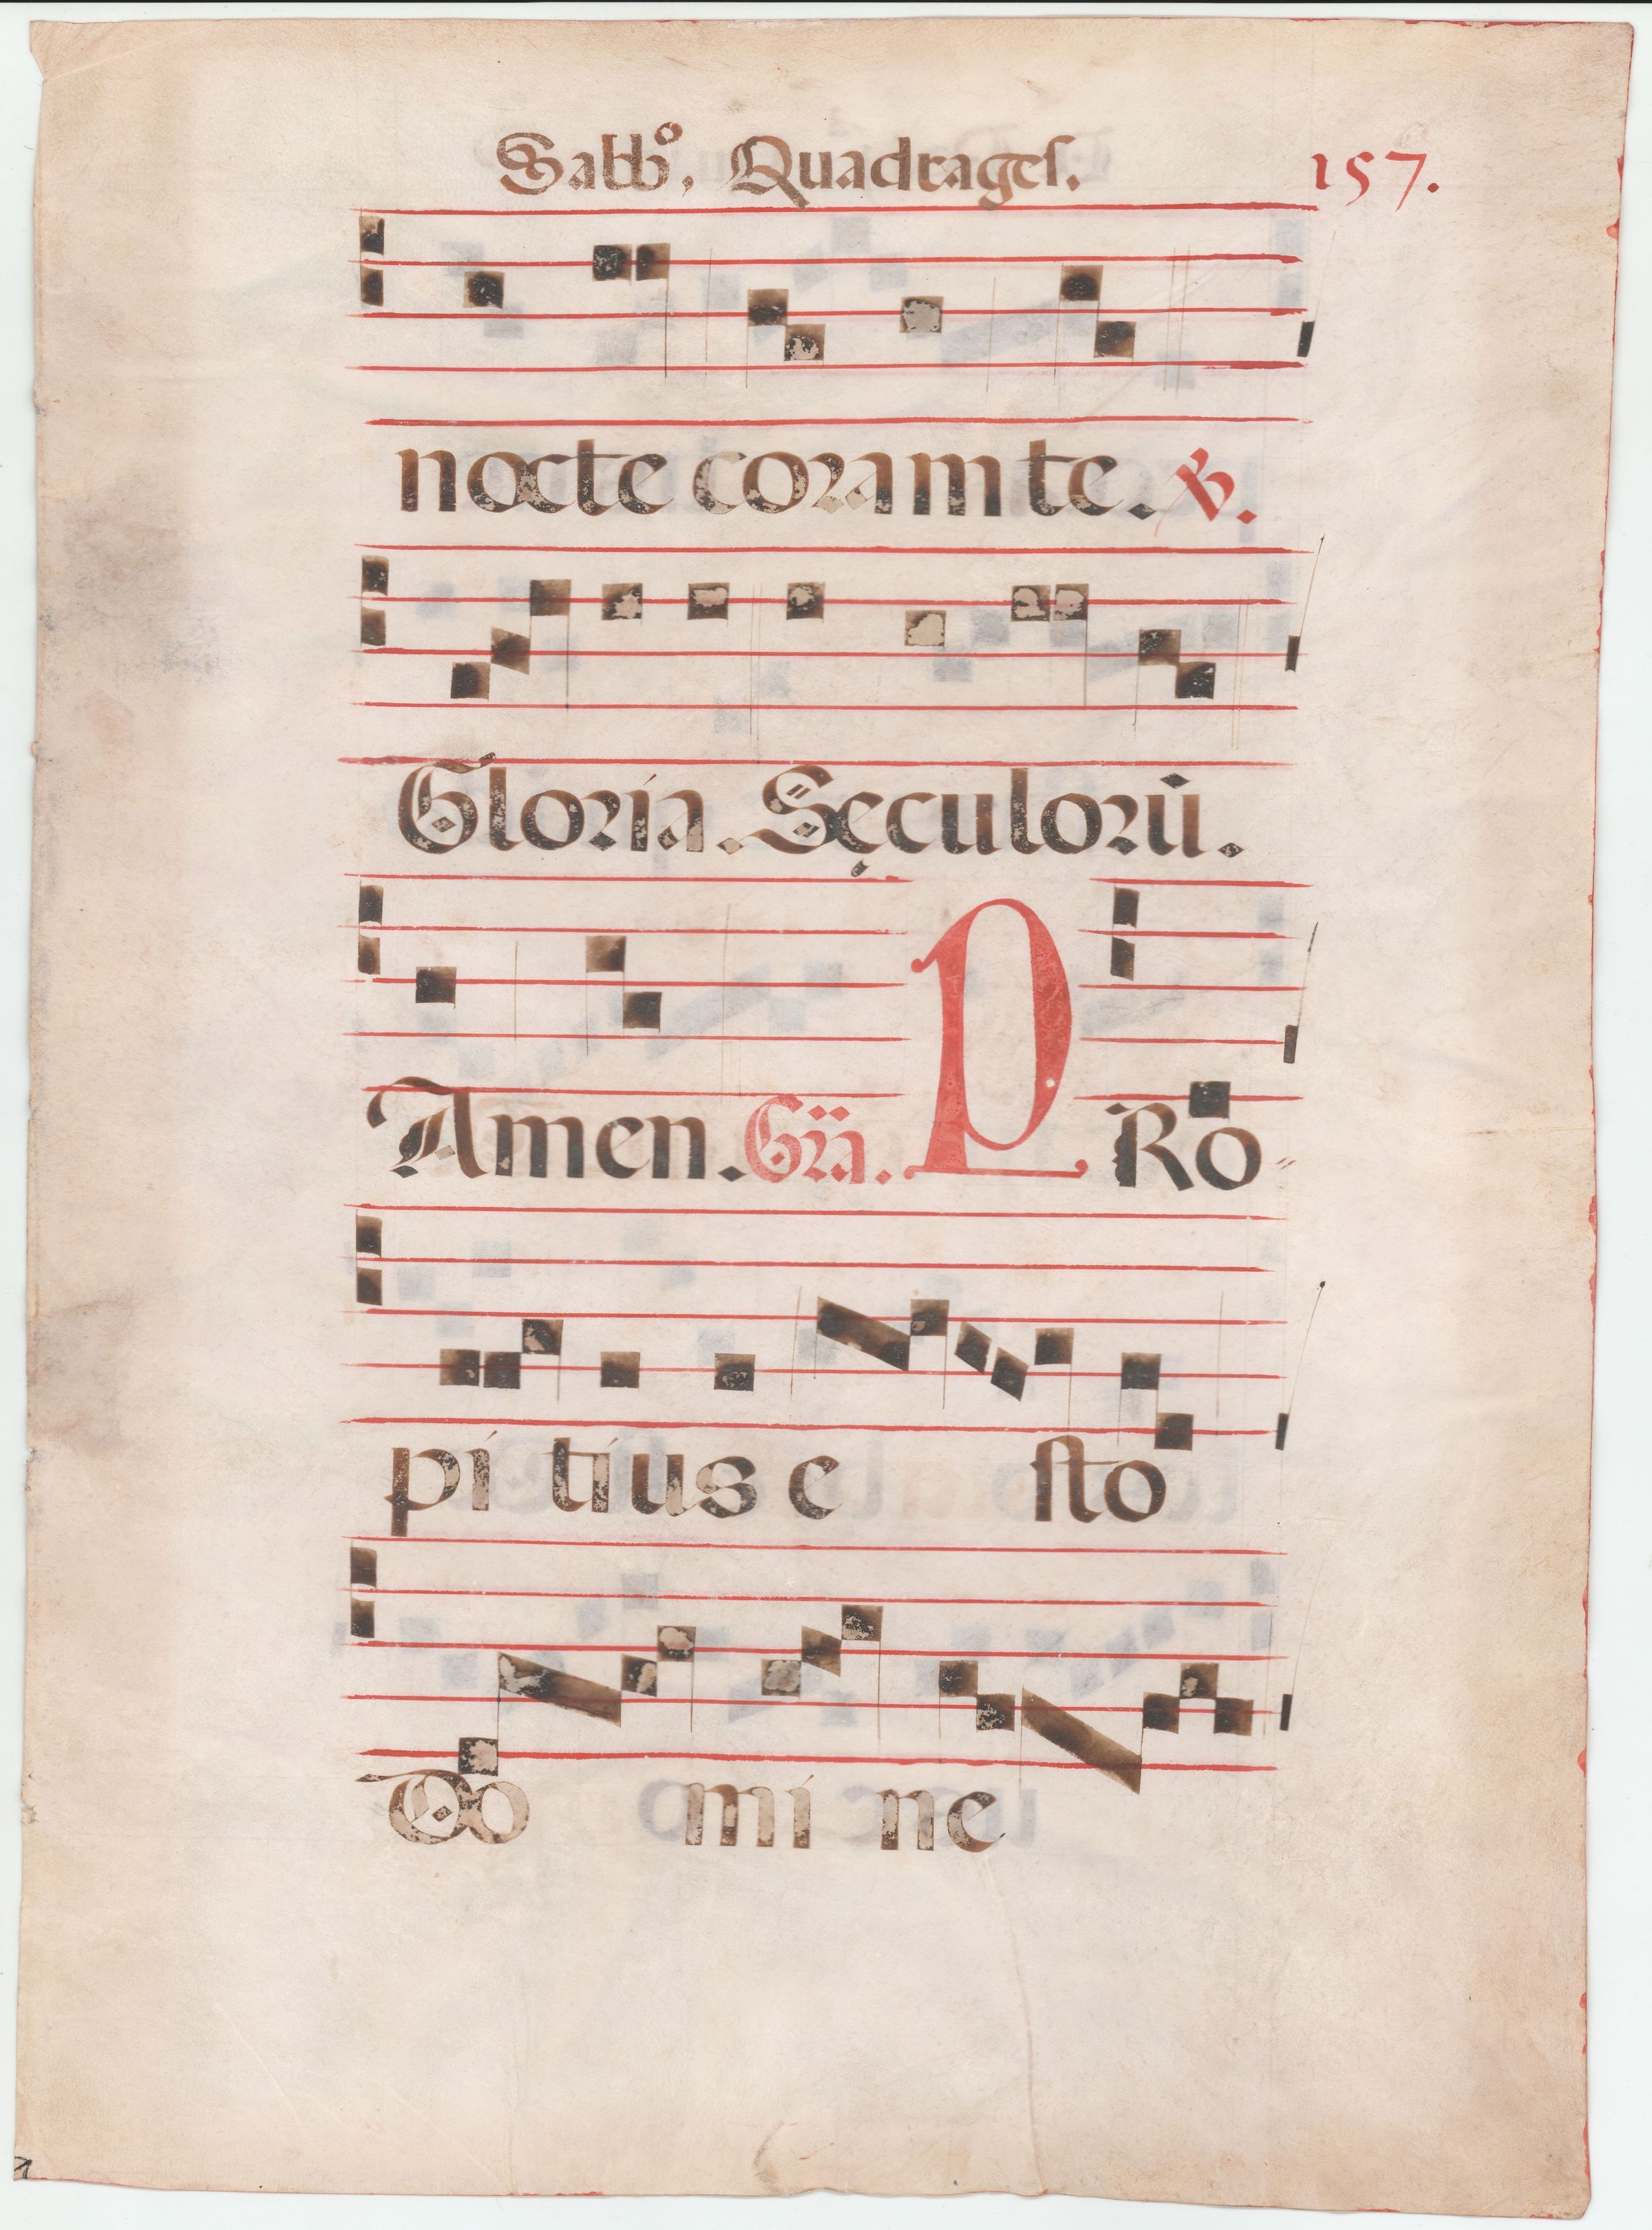 Sabbº. Quadrages. 157.
nocte coram te. ℣.
Gloria. Sęculorū.
Amen. Gra. PRo-
pi tius e sto
Do mi ne